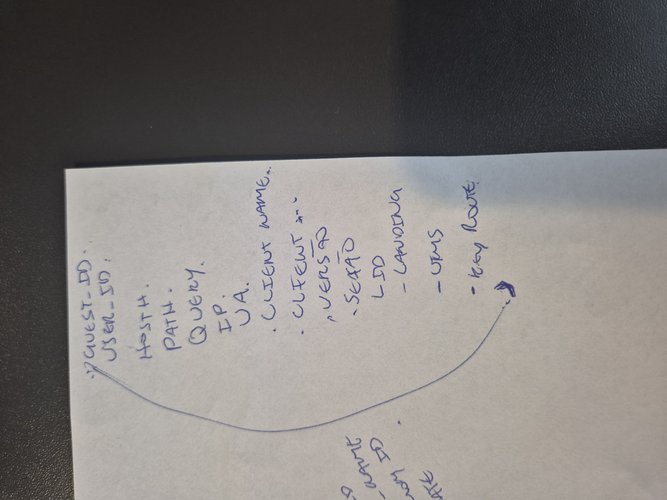 REQUEST_ID.
USER_ID.
HOSTH.
PATH.
QUERY.
IP.
UA.
. CLIENT NAME..
. CLIENT ...
. VERSÃO
. SESSÃO
LID
- LANDING
- UTMS
- KEY ROUTE
NAME
ID